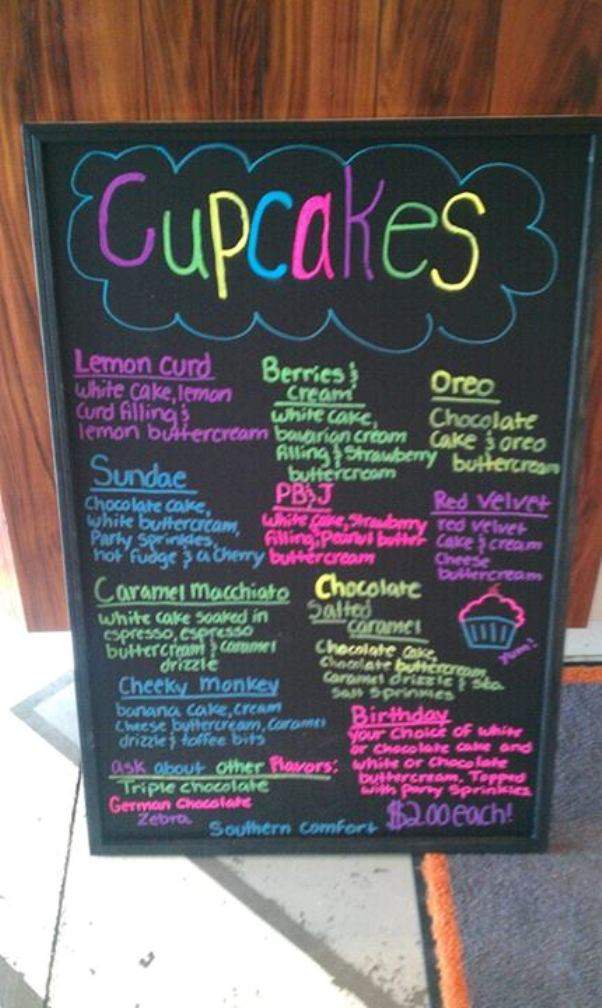 Cupcakes
Lemon Curd
White Cake, lemon
Curd filling &
lemon buttercream
Berries &
Cream
White cake,
bavarian cream
filling & Strawberry
buttercream
Oreo
Chocolate
Cake & oreo
buttercream
Sundae
Chocolate cake,
white buttercream,
Party sprinkles,
hot fudge & a cherry
PB&J
White cake, Strawberry
filling, Peanut butter
buttercream
Red Velvet
red velvet
Cake & cream
Cheese
buttercream
Caramel Macchiato
White cake soaked in
espresso, espresso
buttercream & caramel
drizzle
Chocolate
Salted
Caramel
Chocolate Cake,
Chocolate buttercream,
Caramel drizzle & sea
Salt Sprinkles
yum!
Cheeky Monkey
banana cake, cream
Cheese buttercream, Caramel
drizzle & toffee bits
Birthday
your Choice of white
or chocolate cake and
white or Chocolate
buttercream. Topped
with party Sprinkles
ask about other Flavors:
Triple Chocolate
German Chocolate
Zebra
Southern Comfort
$2.00 each!